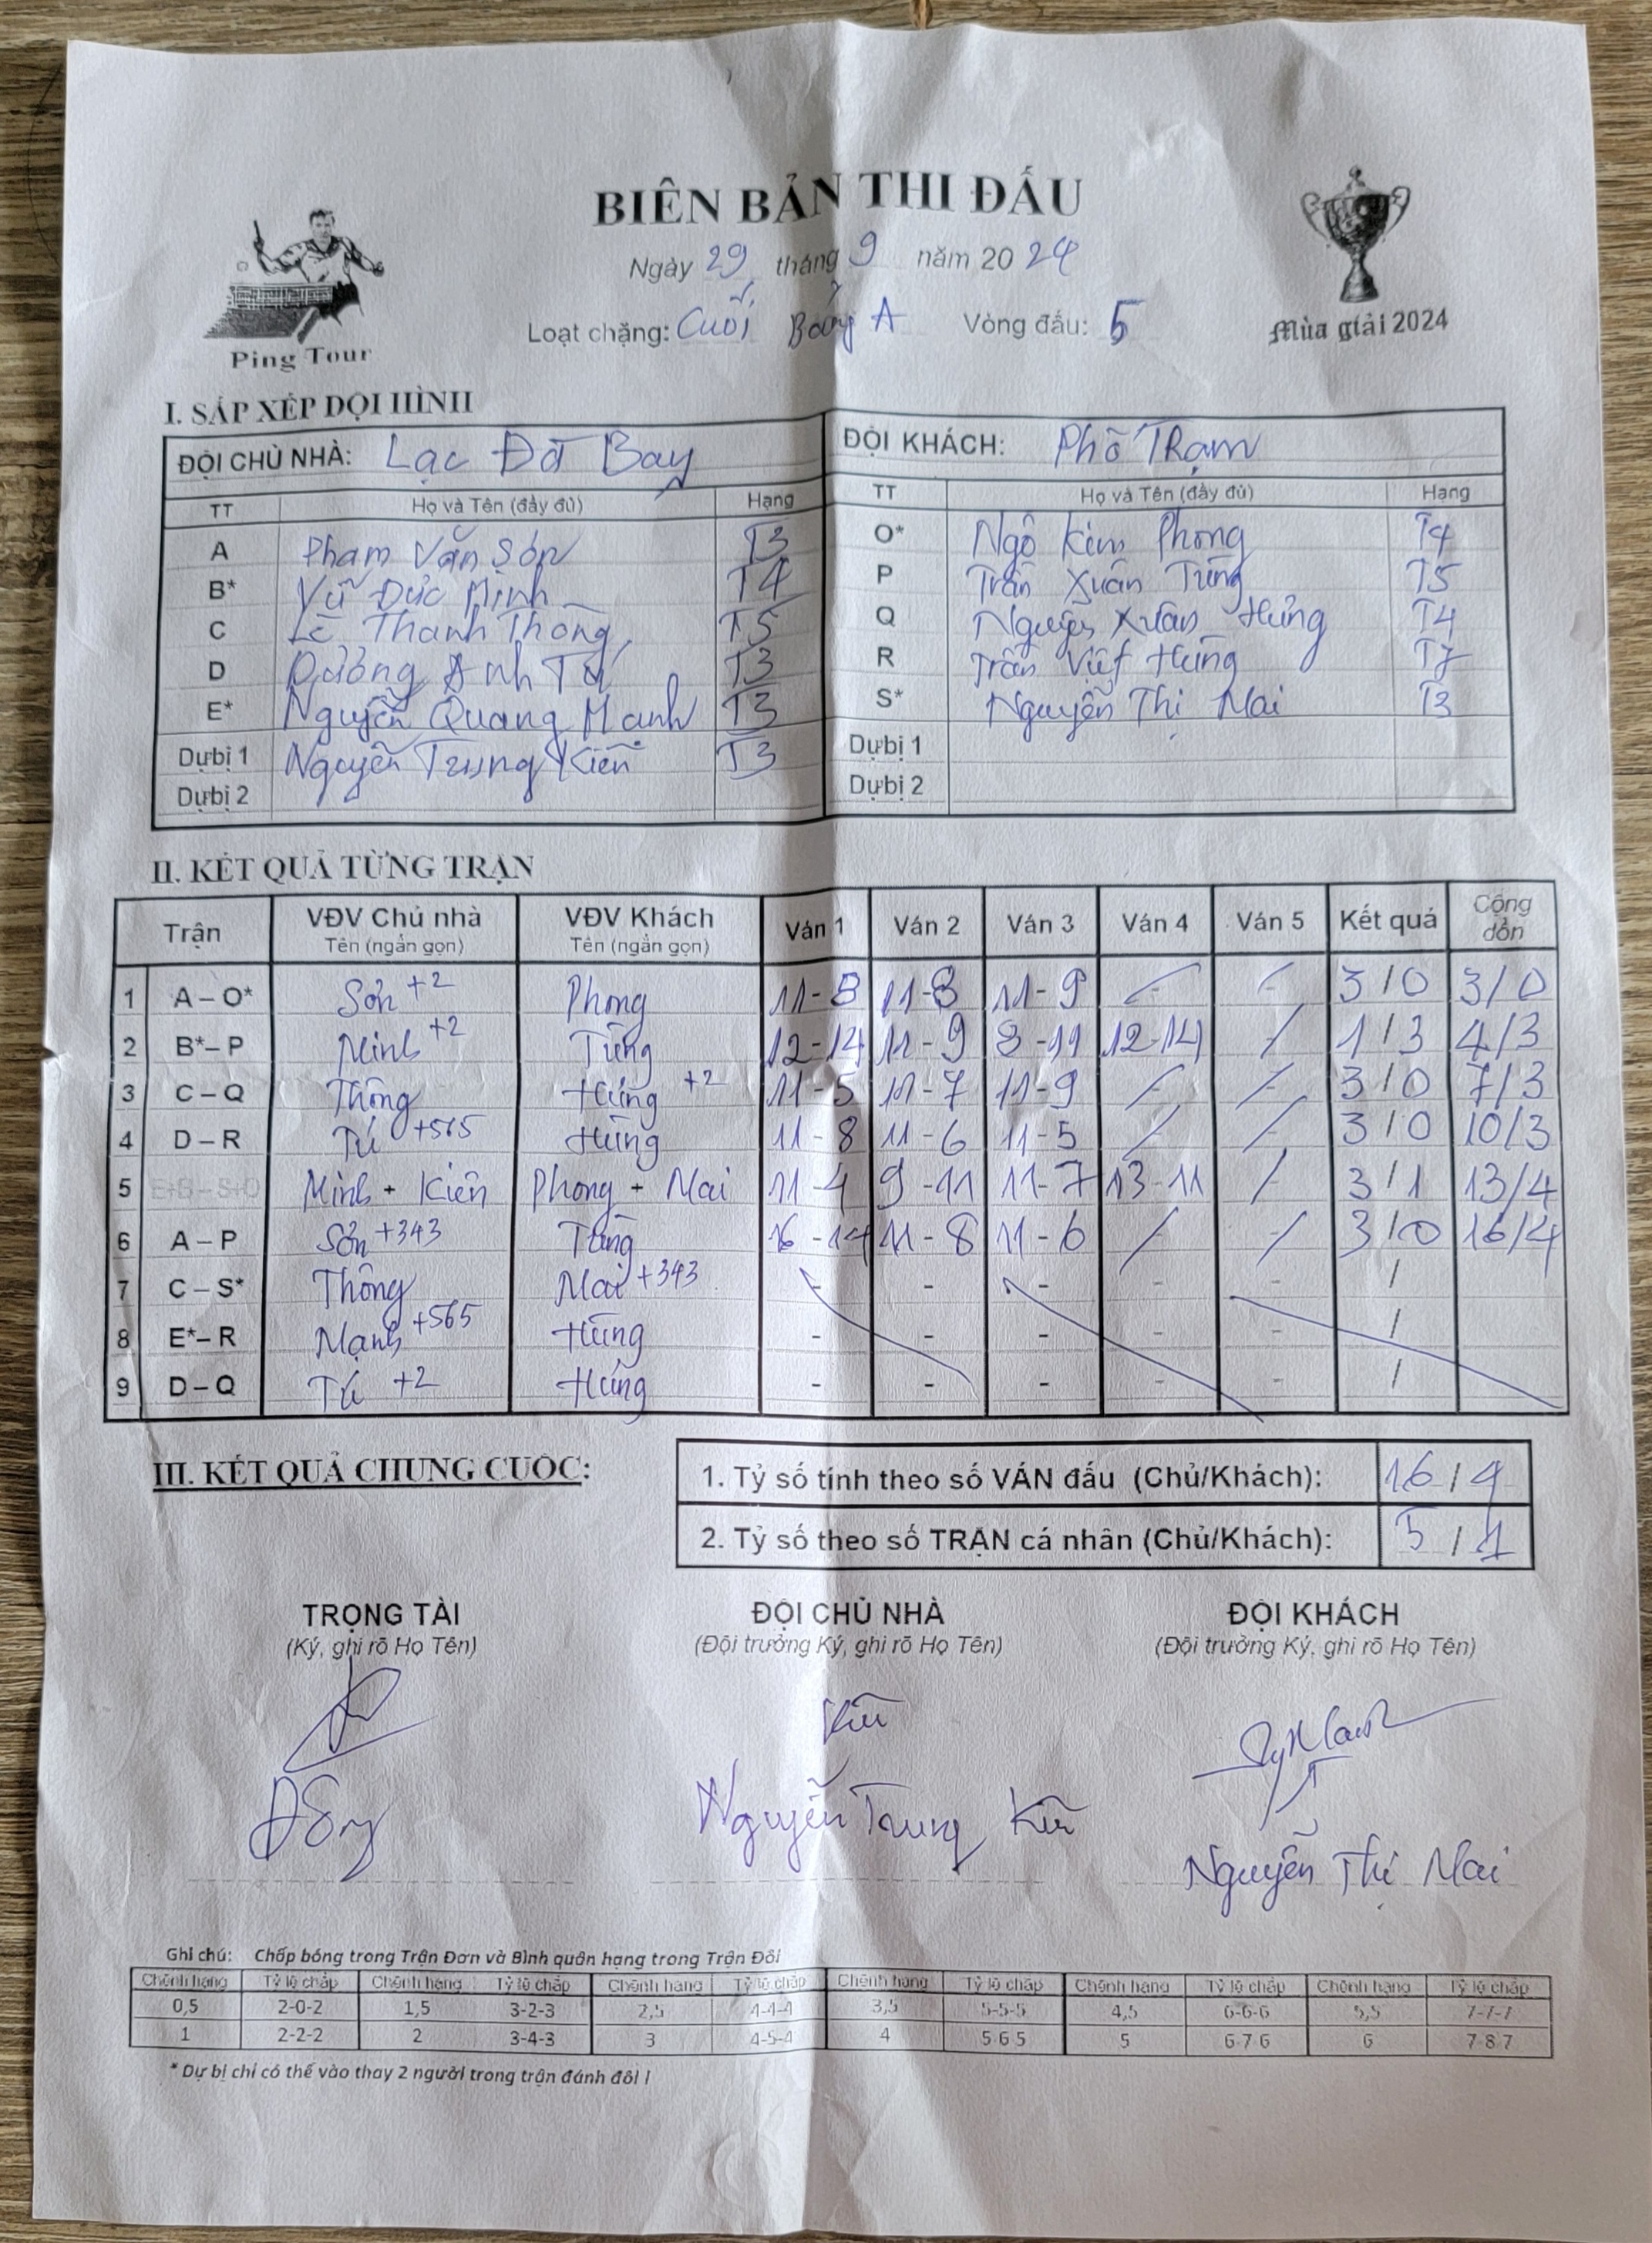 BIÊN BẢN THI ĐẤU
Ngày 29 tháng 9 năm 2024
Loạt chặng: Cuối Bảng A Vòng đấu: 5
Ping Tour
Mùa giải 2024
I. SẮP XẾP ĐỘI HÌNH
ĐỘI CHỦ NHÀ: Lạc Đà Bay ĐỘI KHÁCH: Phố Trạm
TT Họ và Tên (đầy đủ) Hạng TT Họ và Tên (đầy đủ) Hạng
A Phạm Văn Sơn T3 O* Ngô Kim Phong T4
B* Vũ Đức Minh T4 P Trần Xuân Tùng T5
C Lê Thanh Thông T5 Q Nguyễn Xuân Hưng T4
D Dương Anh Tú T3 R Trần Việt Hùng T7
E* Nguyễn Quang Mạnh T3 S* Nguyễn Thị Mai T3
Dự bị 1 Nguyễn Trung Kiên T3 Dự bị 1
Dự bị 2 Dự bị 2
II. KẾT QUẢ TỪNG TRẬN
Trận VĐV Chủ nhà VĐV Khách Ván 1 Ván 2 Ván 3 Ván 4 Ván 5 Kết quả Cộng dồn
Tên (ngắn gọn) Tên (ngắn gọn)
1 A – O* Sơn +2 Phong 11-8 11-8 11-9 - - 3/0 3/0
2 B* – P Minh +2 Tùng 12-14 11-9 8-11 12-14 / 1/3 4/3
3 C – Q Thông Hưng +2 11-5 11-7 11-9 - - 3/0 7/3
4 D – R Tú +565 Hùng 11-8 11-6 11-5 - - 3/0 10/3
5 E+B – S+O Minh + Kiên Phong + Mai 11-4 9-11 11-7 13-11 / 3/1 13/4
6 A – P Sơn +343 Tùng 16-14 11-8 11-6 / / 3/0 16/4
7 C – S* Thông Mai +343 - - - - - /
8 E* – R Mạnh +565 Hùng - - - - - /
9 D – Q Tú +2 Hưng - - - - - /
III. KẾT QUẢ CHUNG CUỘC:
1. Tỷ số tính theo số VÁN đấu (Chủ/Khách): 16/4
2. Tỷ số theo số TRẬN cá nhân (Chủ/Khách): 5/1
TRỌNG TÀI ĐỘI CHỦ NHÀ ĐỘI KHÁCH
(Ký, ghi rõ Họ Tên) (Đội trưởng Ký, ghi rõ Họ Tên) (Đội trưởng Ký, ghi rõ Họ Tên)
Nguyễn Trung Nguyễn Thị Mai
Ghi chú: Chấp bóng trong Trận Đơn và Bình quân hạng trong Trận Đôi
Chênh hạng Tỷ lệ chấp Chênh hạng Tỷ lệ chấp Chênh hạng Tỷ lệ chấp Chênh hạng Tỷ lệ chấp Chênh hạng Tỷ lệ chấp Chênh hạng Tỷ lệ chấp
0,5 2-0-2 1,5 3-2-3 2,5 4-4-4 3,5 5-5-5 4,5 6-6-6 5,5 7-7-7
1 2-2-2 2 3-4-3 3 4-5-4 4 5 6 5 5 6-7 6 6 7 8 7
* Dự bị chỉ có thể vào thay 2 người trong trận đánh đôi !